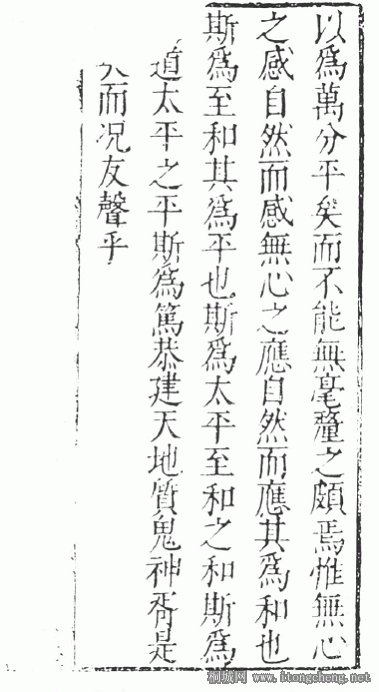 以爲萬分平矣而不能無毫釐之頗焉惟無心
之感自然而感無心之應自然而應其爲和也
斯爲至和其爲平也斯爲太平至和之和斯爲
道太平之平斯爲篤恭建天地質鬼神胥是
而况友聲乎
桐城网 www.itongcheng.net